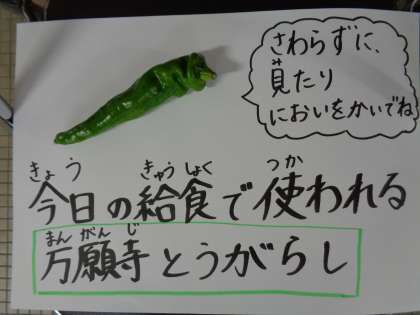 さわらずに、
見たり
においをかいでね
今日の給食で使われる
万願寺とうがらし